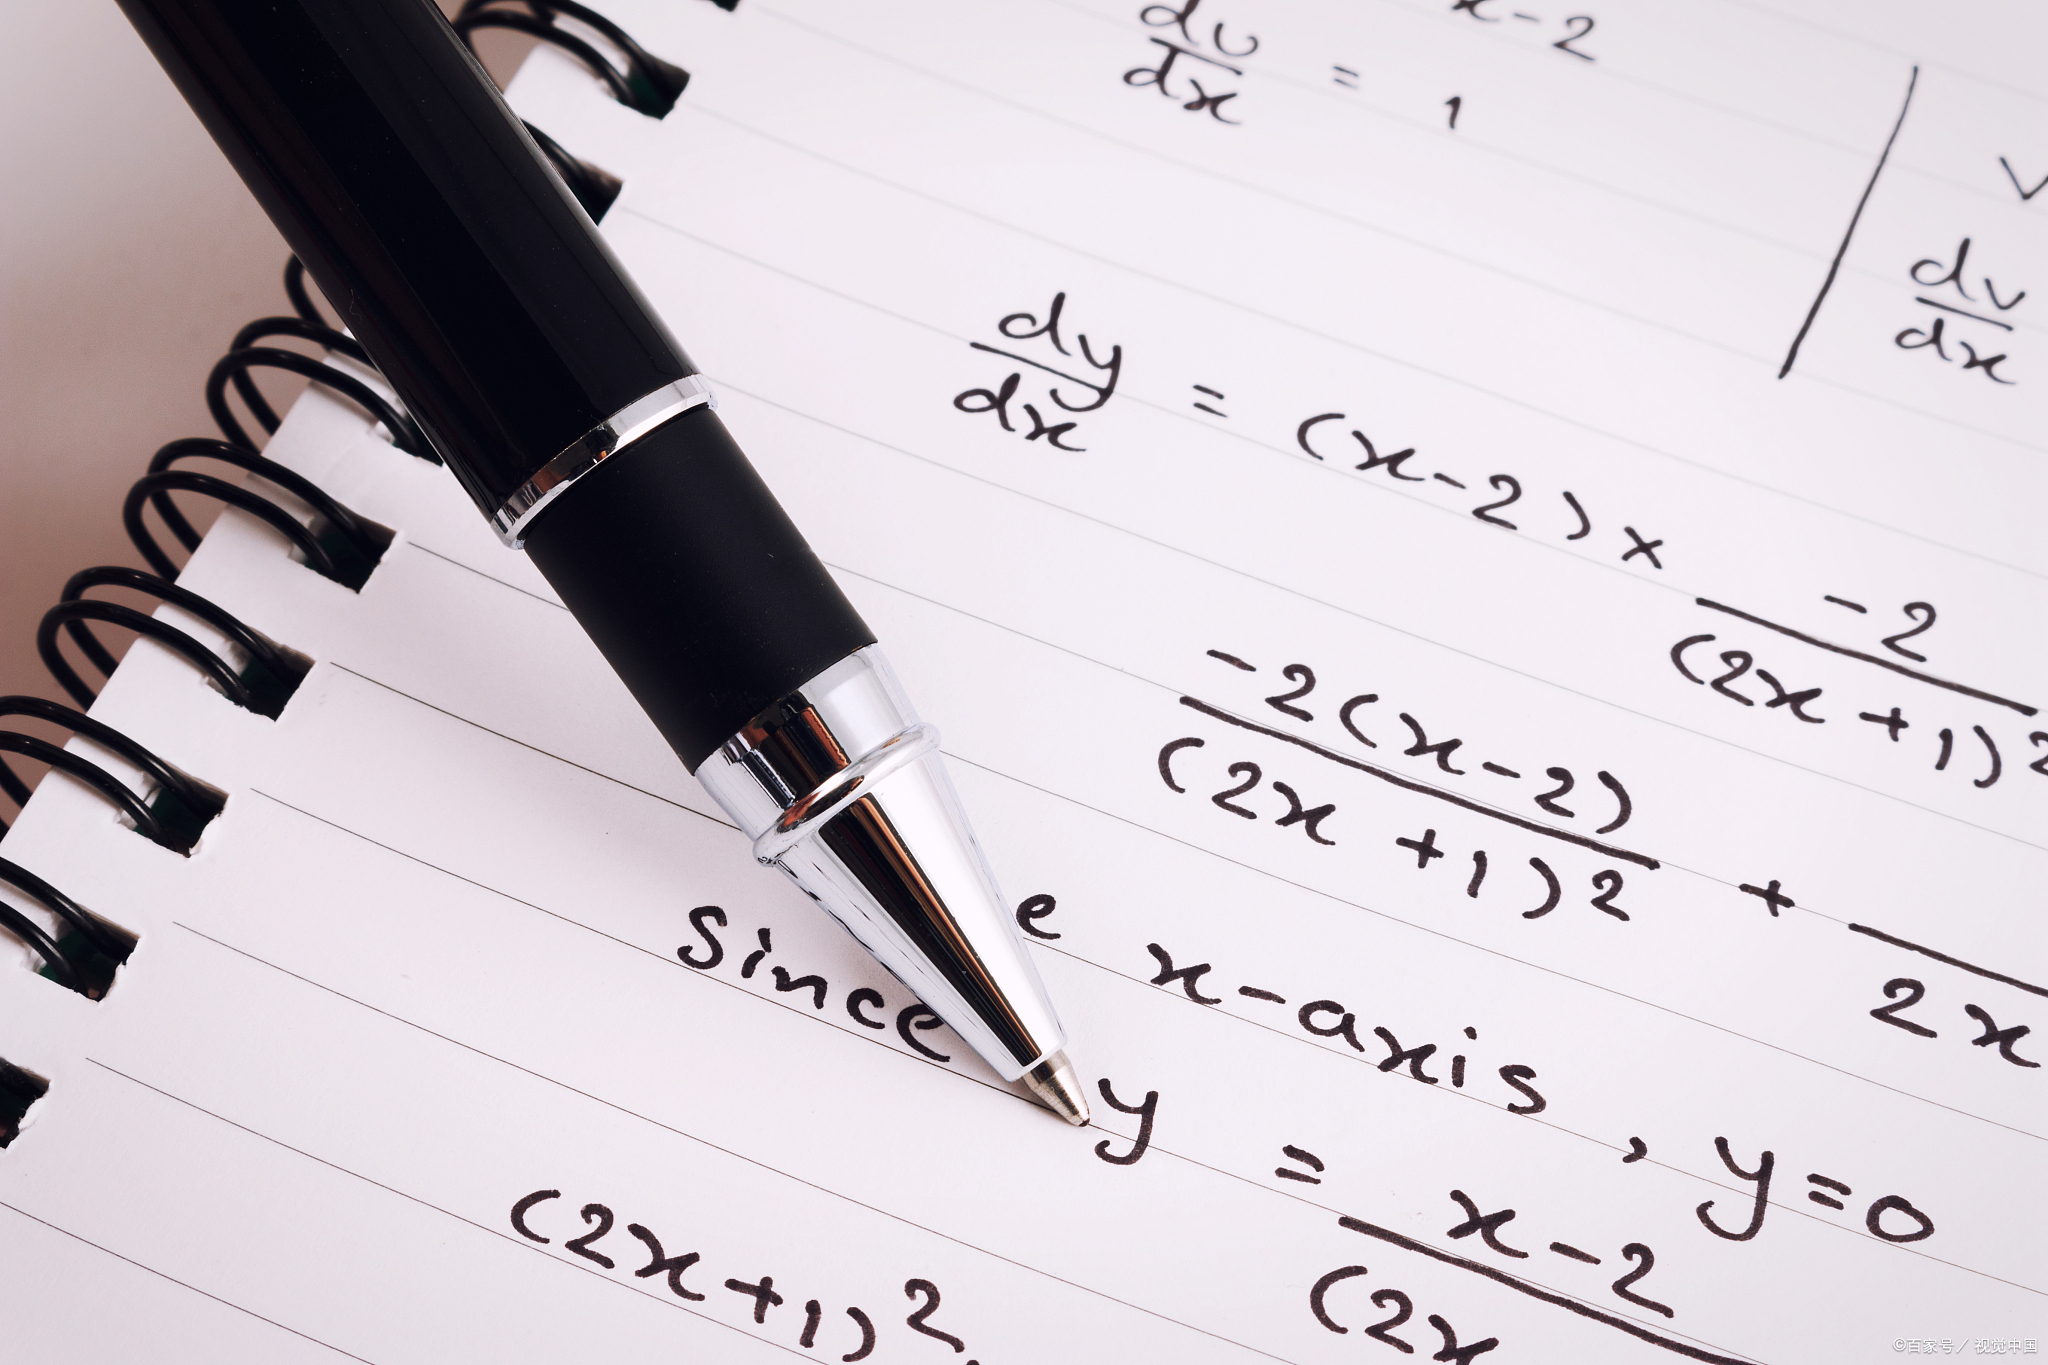 x-2
du/dx = 1
v
dv/dx
dy/dx = (x-2) × -2/(2x+1)²
-2(x-2)/(2x+1)² + /2x
Since e x-axis, y=0
y = x-2/(2x
(2x+1)²
©百家号／视觉中国